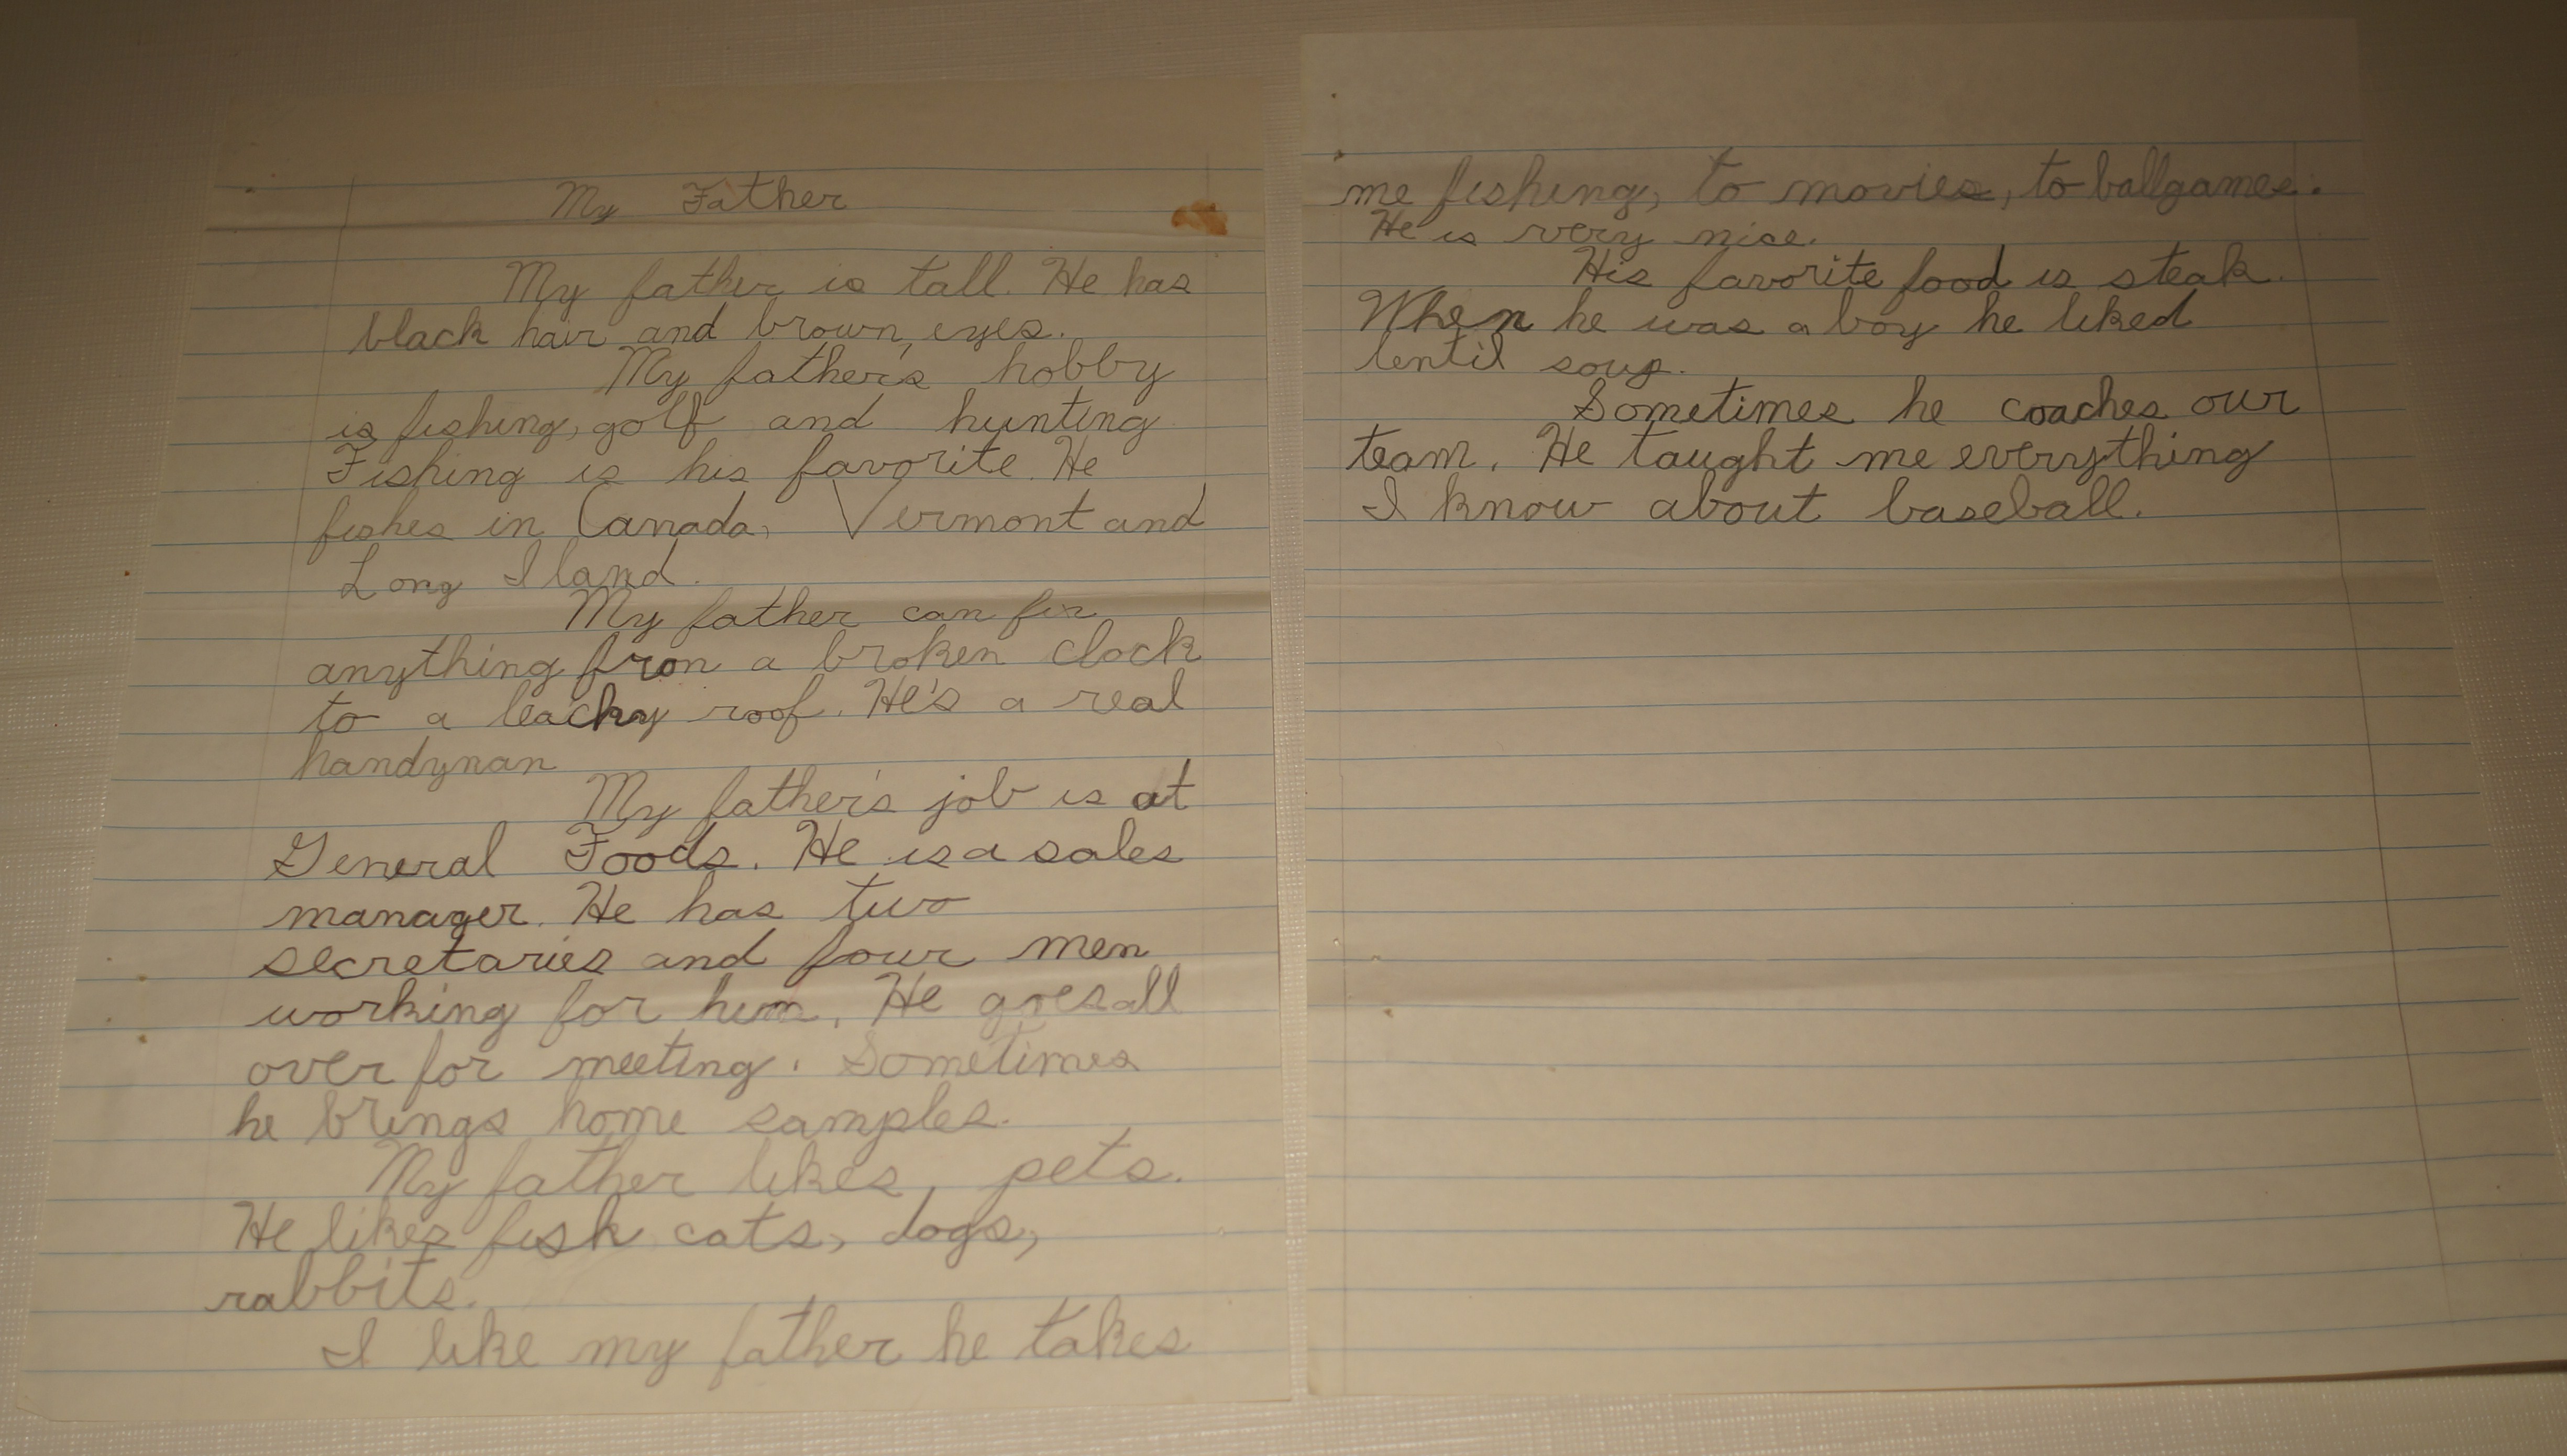 My Father
My father is tall. He has
black hair and brown eyes.
My father's hobby
is fishing, golf and hunting
Fishing is his favorite. He
fishes in Canada, Vermont and
Long Iland.
My father can fix
anything fron a broken clock
to a leacky roof. He's a real
handynan
My father's job is at
General Foods. He is a sales
manager. He has two
secretaries and four men
working for him. He goes all
over for meeting. Sometimes
he brings home samples.
My father likes, pets.
He likes fish cats, dogs,
rabbits.
I like my father he takes
me fishing, to movies, to ballgames.
He is very nice.
His favorite food is steak.
When he was a boy he liked
lentil soup.
Sometimes he coaches our
team. He taught me everything
I know about baseball.